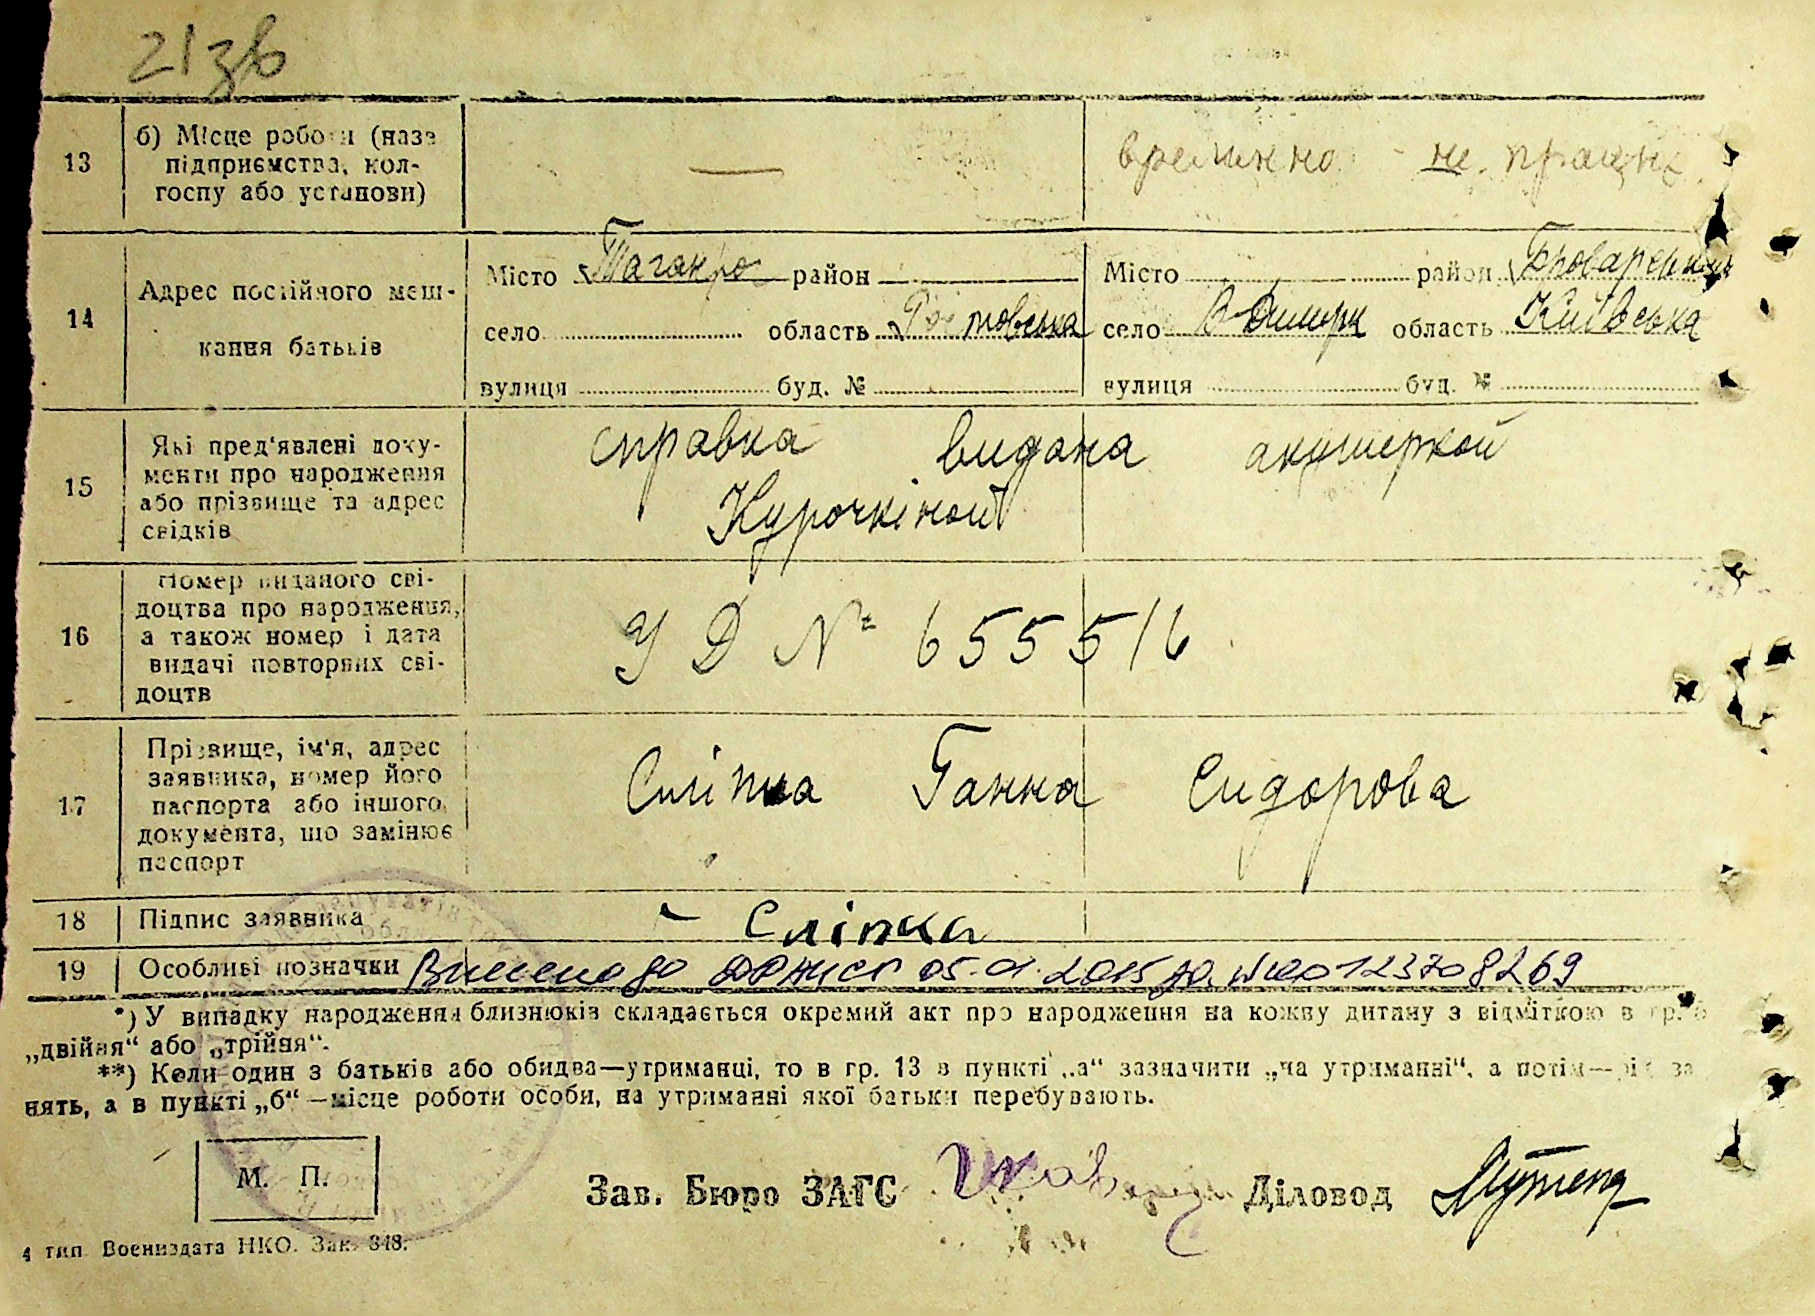 21 зв
13
б) Місце роботи (назва
підприємства, кол-
госпу або установи)
—
времинно не працює
14
Адрес постійного меш-
кання батьків
Місто Таганро район
село область Ростовська
вулиця буд. №
Місто район Броварський
село В-Димерк область Київська
вулиця буд. №
15
Які пред'явлені доку-
менти про народження
або прізвище та адрес
свідків
справка видана акушеркой
Курочкіной
16
Номер виданого сві-
доцтва про народження,
а також номер і дата
видачі повторних сві-
доцтв
УД № 655516
17
Прізвище, ім'я, адрес
заявника, номер його
паспорта або іншого
документа, що замінює
паспорт
Сліпка Ганна Сидорова
18
Підпис заявника
Сліпка
19
Особливі позначки
Внесено до ДРАЦСГ 05.01.2015 за №00123708269
*) У випадку народження близнюків складається окремий акт про народження на кожну дитину з відміткою в гр. 6
„двійня“ або „трійня“.
**) Коли один з батьків або обидва—утриманці, то в гр. 13 в пункті „а“ зазначити „на утриманні“, а потім—рід за
нять, а в пункті „б“ —місце роботи особи, на утриманні якої батьки перебувають.
М. П.
Зав. Бюро ЗАГС
Діловод
4 тип. Воениздата НКО. Зак. 348.